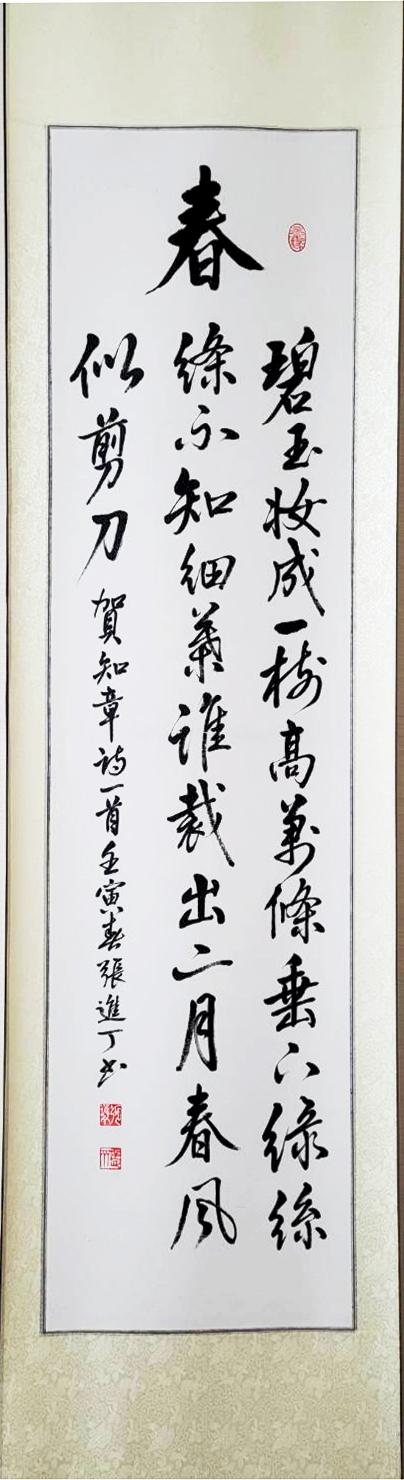 春
碧玉妝成一樹高萬條垂下綠絲
絛不知細葉誰裁出二月春風
似剪刀
賀知章詩一首壬寅春張進丁書